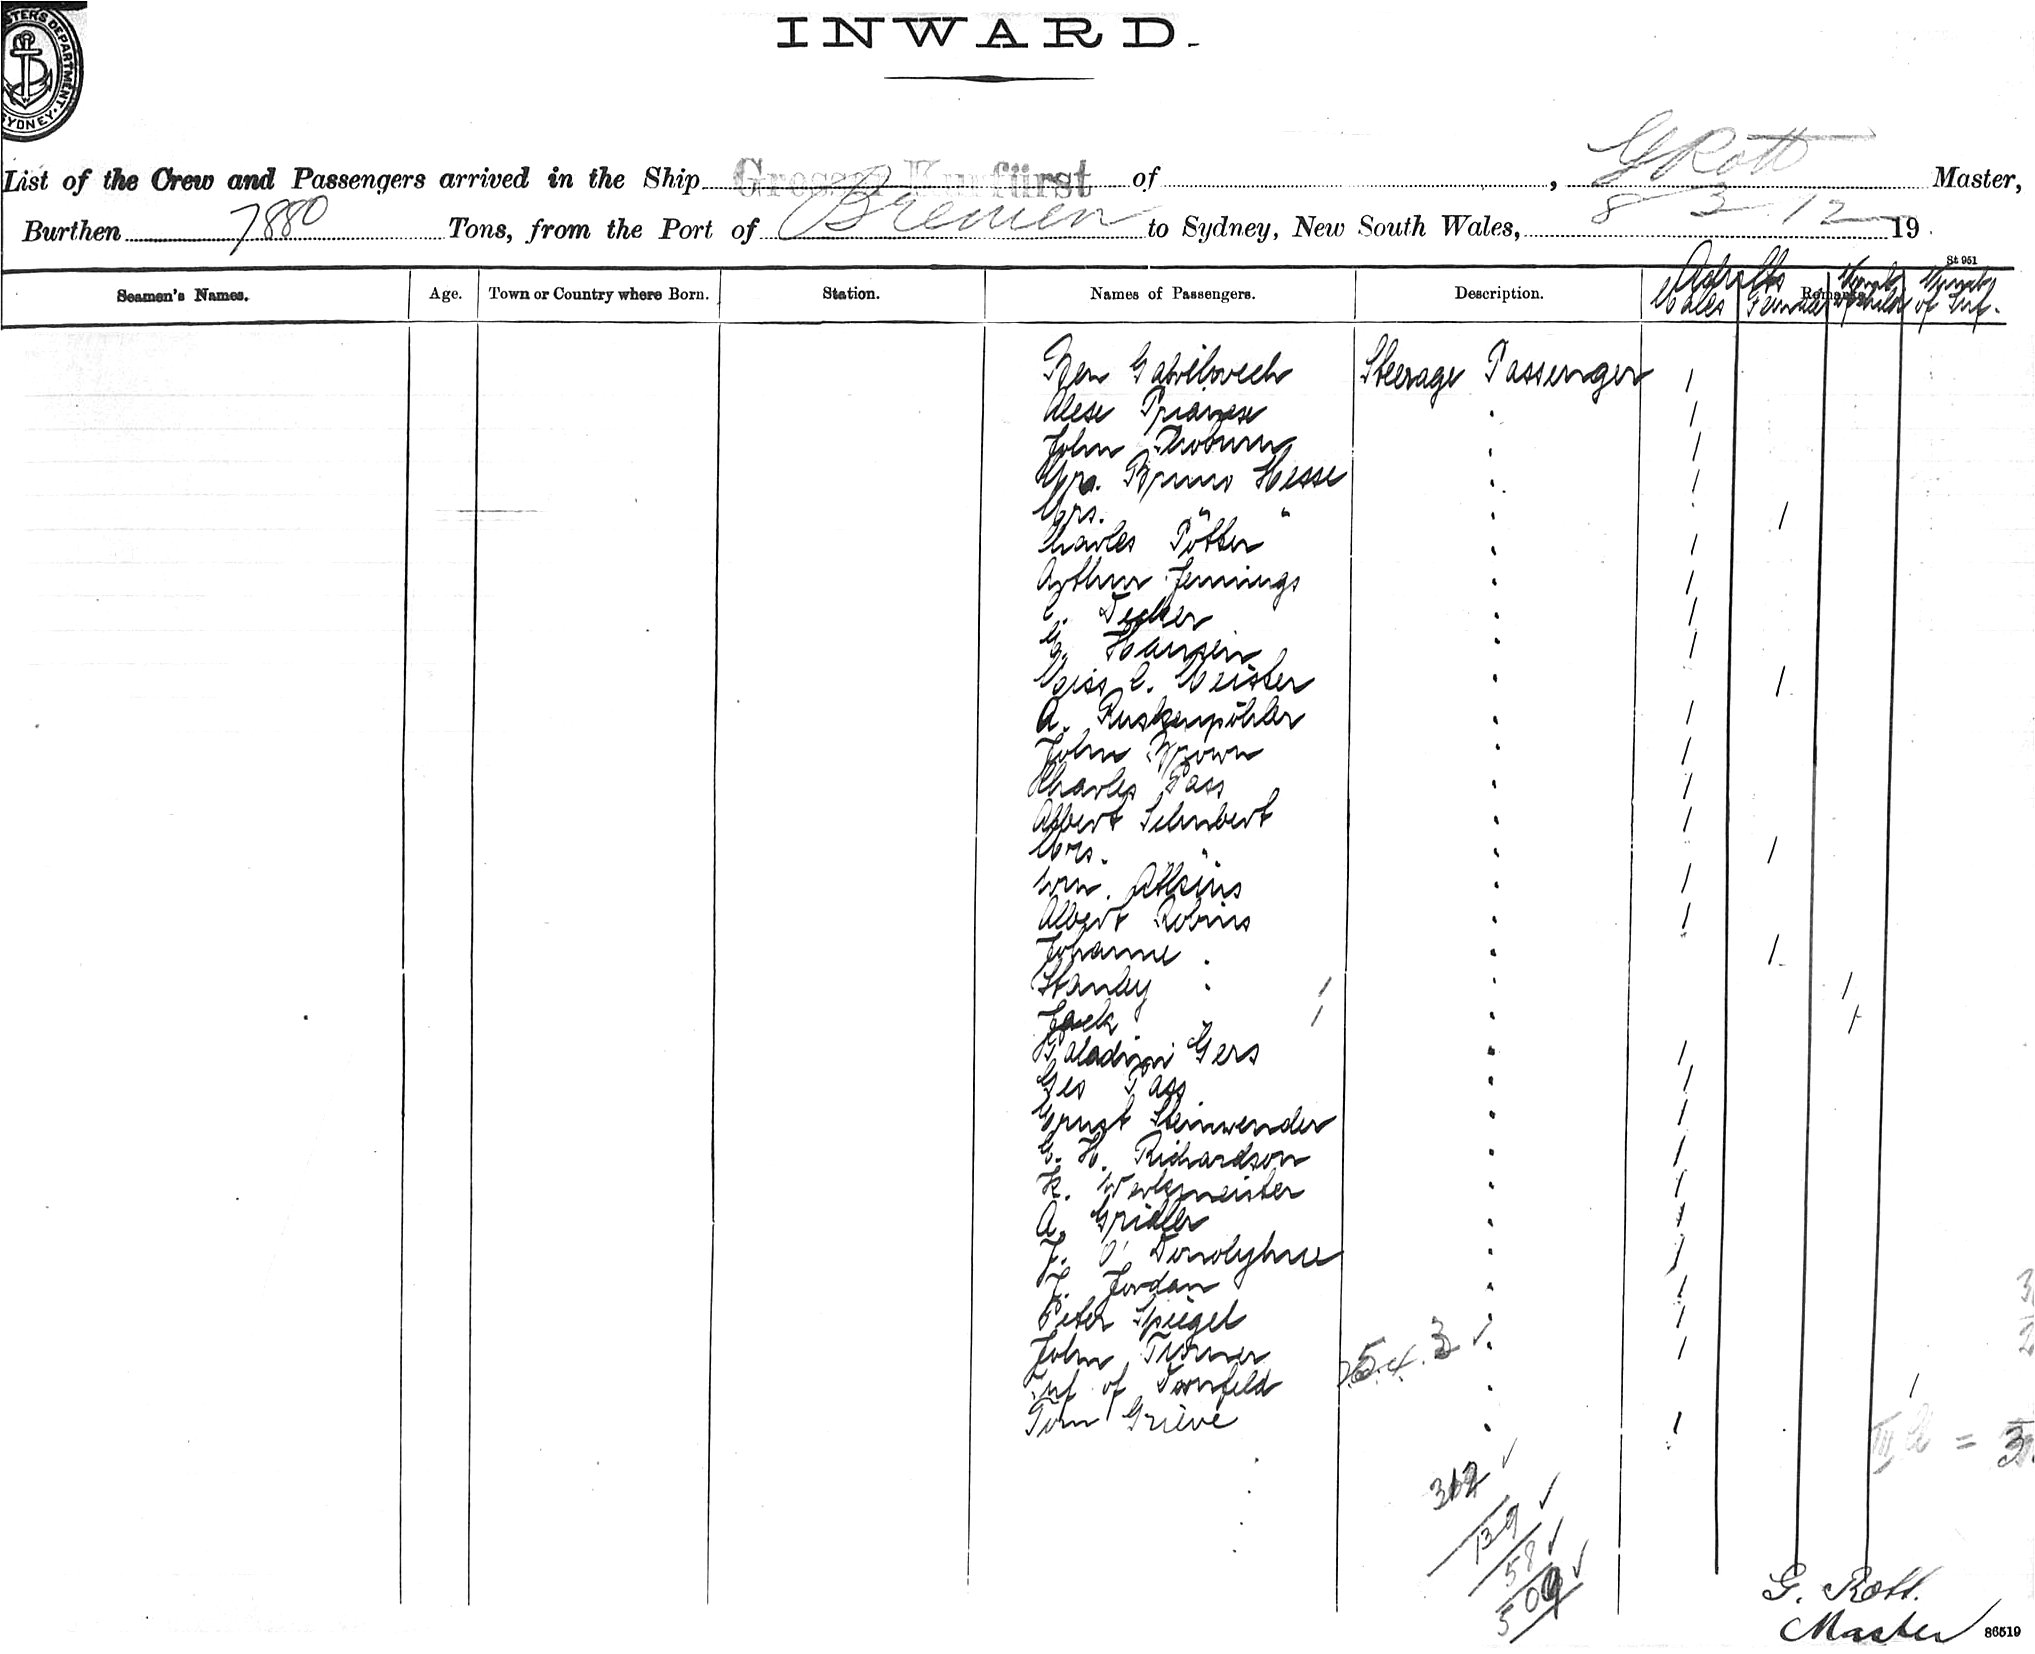 MASTERS DEPARTMENT. SYDNEY.
INWARD.
List of the Crew and Passengers arrived in the Ship Grosser Kurfürst of , G Rott Master,
Burthen 7880 Tons, from the Port of Bremen to Sydney, New South Wales, 8 3 12 19
St 951
Seamen's Names. Age. Town or Country where Born. Station. Names of Passengers. Description. Remarks
Adults
Males Females of Inf.
Ben Steerage Passenger 1
1
John 1
Bruno Hesse 1
Mrs. " " 1
Charles Pötter 1
Arthur Jennings 1
C. Decker 1
Hansen 1
Miss C. Meister 1
A. 1
John Brown 1
Charles Pass 1
Albert Schubert 1
Mrs. " 1
Wm. Atkins 1
Albert Robins 1
Johanne " 1
Stanley " 1 1
Jack " 1 1
Gers 1
Geo Pass 1
Ernst Steinwender 1
G. H. Richardson 1
K. Werkmeister 1
A. Gridler 1
J. O' 1
J. Jordan 1
Peter Spiegel 1
John Turner 1
Inf of Dornfeld 1
Tom Grieve 1
312
139
58
509
G. Rott.
Master
86519